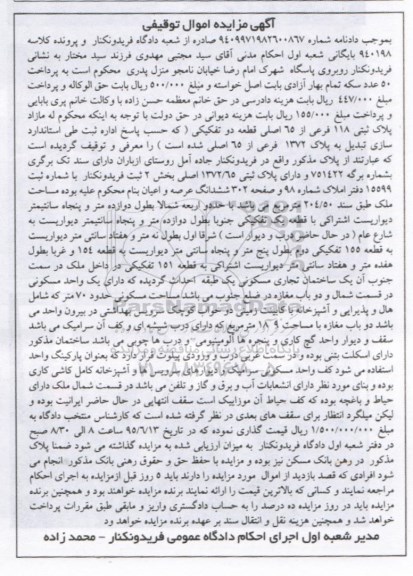 آگهی مزایده اموال توقیفی
بموجب دادنامه شماره ۹۴۰۹۹۷۱۹۸۲۶۰۰۸۶۷ صادره از شعبه دادگاه فریدونکنار و پرونده کلاسه
۹۴۰۱۹۸ بایگانی شعبه اول احکام مدنی آقای سید مجتبی مهدوی فرزند سید مختار به نشانی
فریدونکنار روبروی پاسگاه شهرک امام رضا خیابان نامجو منزل پدری محکوم است به پرداخت
۵۰ عدد سکه تمام بهار آزادی بابت اصل خواسته و مبلغ ۵۰۰/۰۰۰ ریال بابت حق الوکاله و پرداخت
مبلغ ۴۴۷/۰۰۰ ریال بابت هزینه دادرسی در حق خانم معظمه حسن زاده با وکالت خانم پری بابایی
و پرداخت مبلغ ۱۵۵/۰۰۰ ریال بابت هزینه دیوانی در حق دولت با توجه به اینکه محکوم له مازاد
پلاک ثبتی ۱۱۸ فرعی از ۶۵ اصلی قطعه دو تفکیکی ( که حسب پاسخ اداره ثبت طی استاندارد
سازی تبدیل به پلاک ۱۳۷۲ فرعی از ۶۵ اصلی شده است ) را معرفی و توقیف گردیده است
که عبارتند از پلاک مذکور واقع در فریدونکنار جاده آمل روستای ازباران دارای سند تک برگری
بشماره برگه ۷۵۱۴۲۲ و دارای پلاک ثبتی ۱۳۷۲/۶۵ اصلی بخش ۲ ثبت فریدونکنار با شماره ثبت
۱۵۵۹۹ دفتر املاک شماره ۹۸ و صفحه ۳۰۲ ششدانگ عرصه و اعیان بنام محکوم علیه بوده مساحت
ملک طبق سند ۲۰۴/۵۰ مترمربع می باشد با حدود اربعه شمالا بطول دوازده متر و پنجاه سانتیمتر
دیواریست اشتراکی با قطعه یک تفکیکی جنوبا بطول دوازده متر و پنجاه سانتیمتر دیواریست به
شارع عام ( در حال حاضر درب و دیوار است ) شرقا اول بطول نه متر و هفتاد سانتی متر دیواریست
به قطعه ۱۵۵ تفکیکی دوم بطول پنج متر و پنجاه سانتی متر دیواریست به قطعه ۱۵۴ و غربا بطول
هفده متر و هفتاد سانتی متر دیواریست اشتراکی به قطعه ۱۵۱ تفکیکی در داخل ملک در سمت
جنوب آن یک ساختمان تجاری مسکونی یک طبقه احداث گردیده که دارای یک واحد مسکونی
در قسمت شمال و دو باب مغازه در ضلع جنوب می باشد مساحت مسکونی حدود ۷۰ متر که شامل
هال و پذیرایی و آشپزخانه با کابینت و اپن دو خواب کوچک سرویس بهداشتی در بیرون واحد می
باشد دو باب مغازه با مساحت ۹ ۱۸ مترمربع که دارای درب شیشه ای و کف آن سرامیک می باشد
سقف و دیوار واحد گچ کاری و پنجره ها آلومینیومی و درب ها چوبی می باشد ساختمان مذکور
دارای اسکلت بتنی بوده و در سمت غربی درب و ورودی پیلوت قرار دارد که بعنوان پارکینگ واحد
استفاده می شود کف واحد مسکونی سرامیک و دیواره های سرویس ها و آشپزخانه کامل کاشی کاری
بوده و بنای مورد نظر دارای انشعابات آب و برق و گاز و تلفن می باشد در قسمت شمال ملک دارای
حیاط و باغچه بوده که کف حیاط آن موزاییک است سقف انتهایی در حال حاضر ایرانیت بوده و
لیکن میلگرد انتظار برای سقف های بعدی در نظر گرفته شده است که کارشناس منتخب دادگاه به
مبلغ ۱/۵۰۰/۰۰۰/۰۰۰ ریال قیمت گذاری نموده که در تاریخ ۹۵/۶/۱۳ ساعت ۸ الی ۸/۳۰ صبح
در دفتر شعبه اول دادگاه فریدونکنار به میزان ارزیابی شده به مزایده گذاشته می شود ضمنا پلاک
مذکور در رهن بانک مسکن نیز بوده و مزایده با حفظ حق و حقوق رهنی بانک مذکور انجام می
شود افرادی که قصد بازدید از اموال مورد مزایده را دارند باید ۵ روز قبل ازمزایده به اجرای احکام
مراجعه نمایند و کسانی که بالاترین قیمت را ارائه نمایند برنده مزایده خواهند بود و همچنین برنده
مزایده باید در روز مزایده ده درصد را به حساب دادگستری واریز و مابقی طبق مقررات پرداخت
خواهد شد و همچنین هزینه نقل و انتقال سند بر عهده برنده مزایده خواهد ود
مدیر شعبه اول اجرای احکام دادگاه عمومی فریدونکنار - محمد زاده